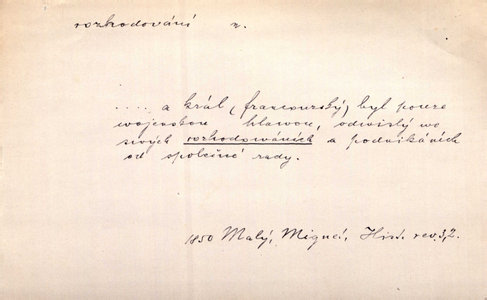 rozhodování n.
.... a král (francouzský) byl pouze
wojenskou hlawou, odwislý we
swých rozhodowáních a podnikáních
od společné rady.
1850 Malý, Mignet, Hist. rev. 3, 2.